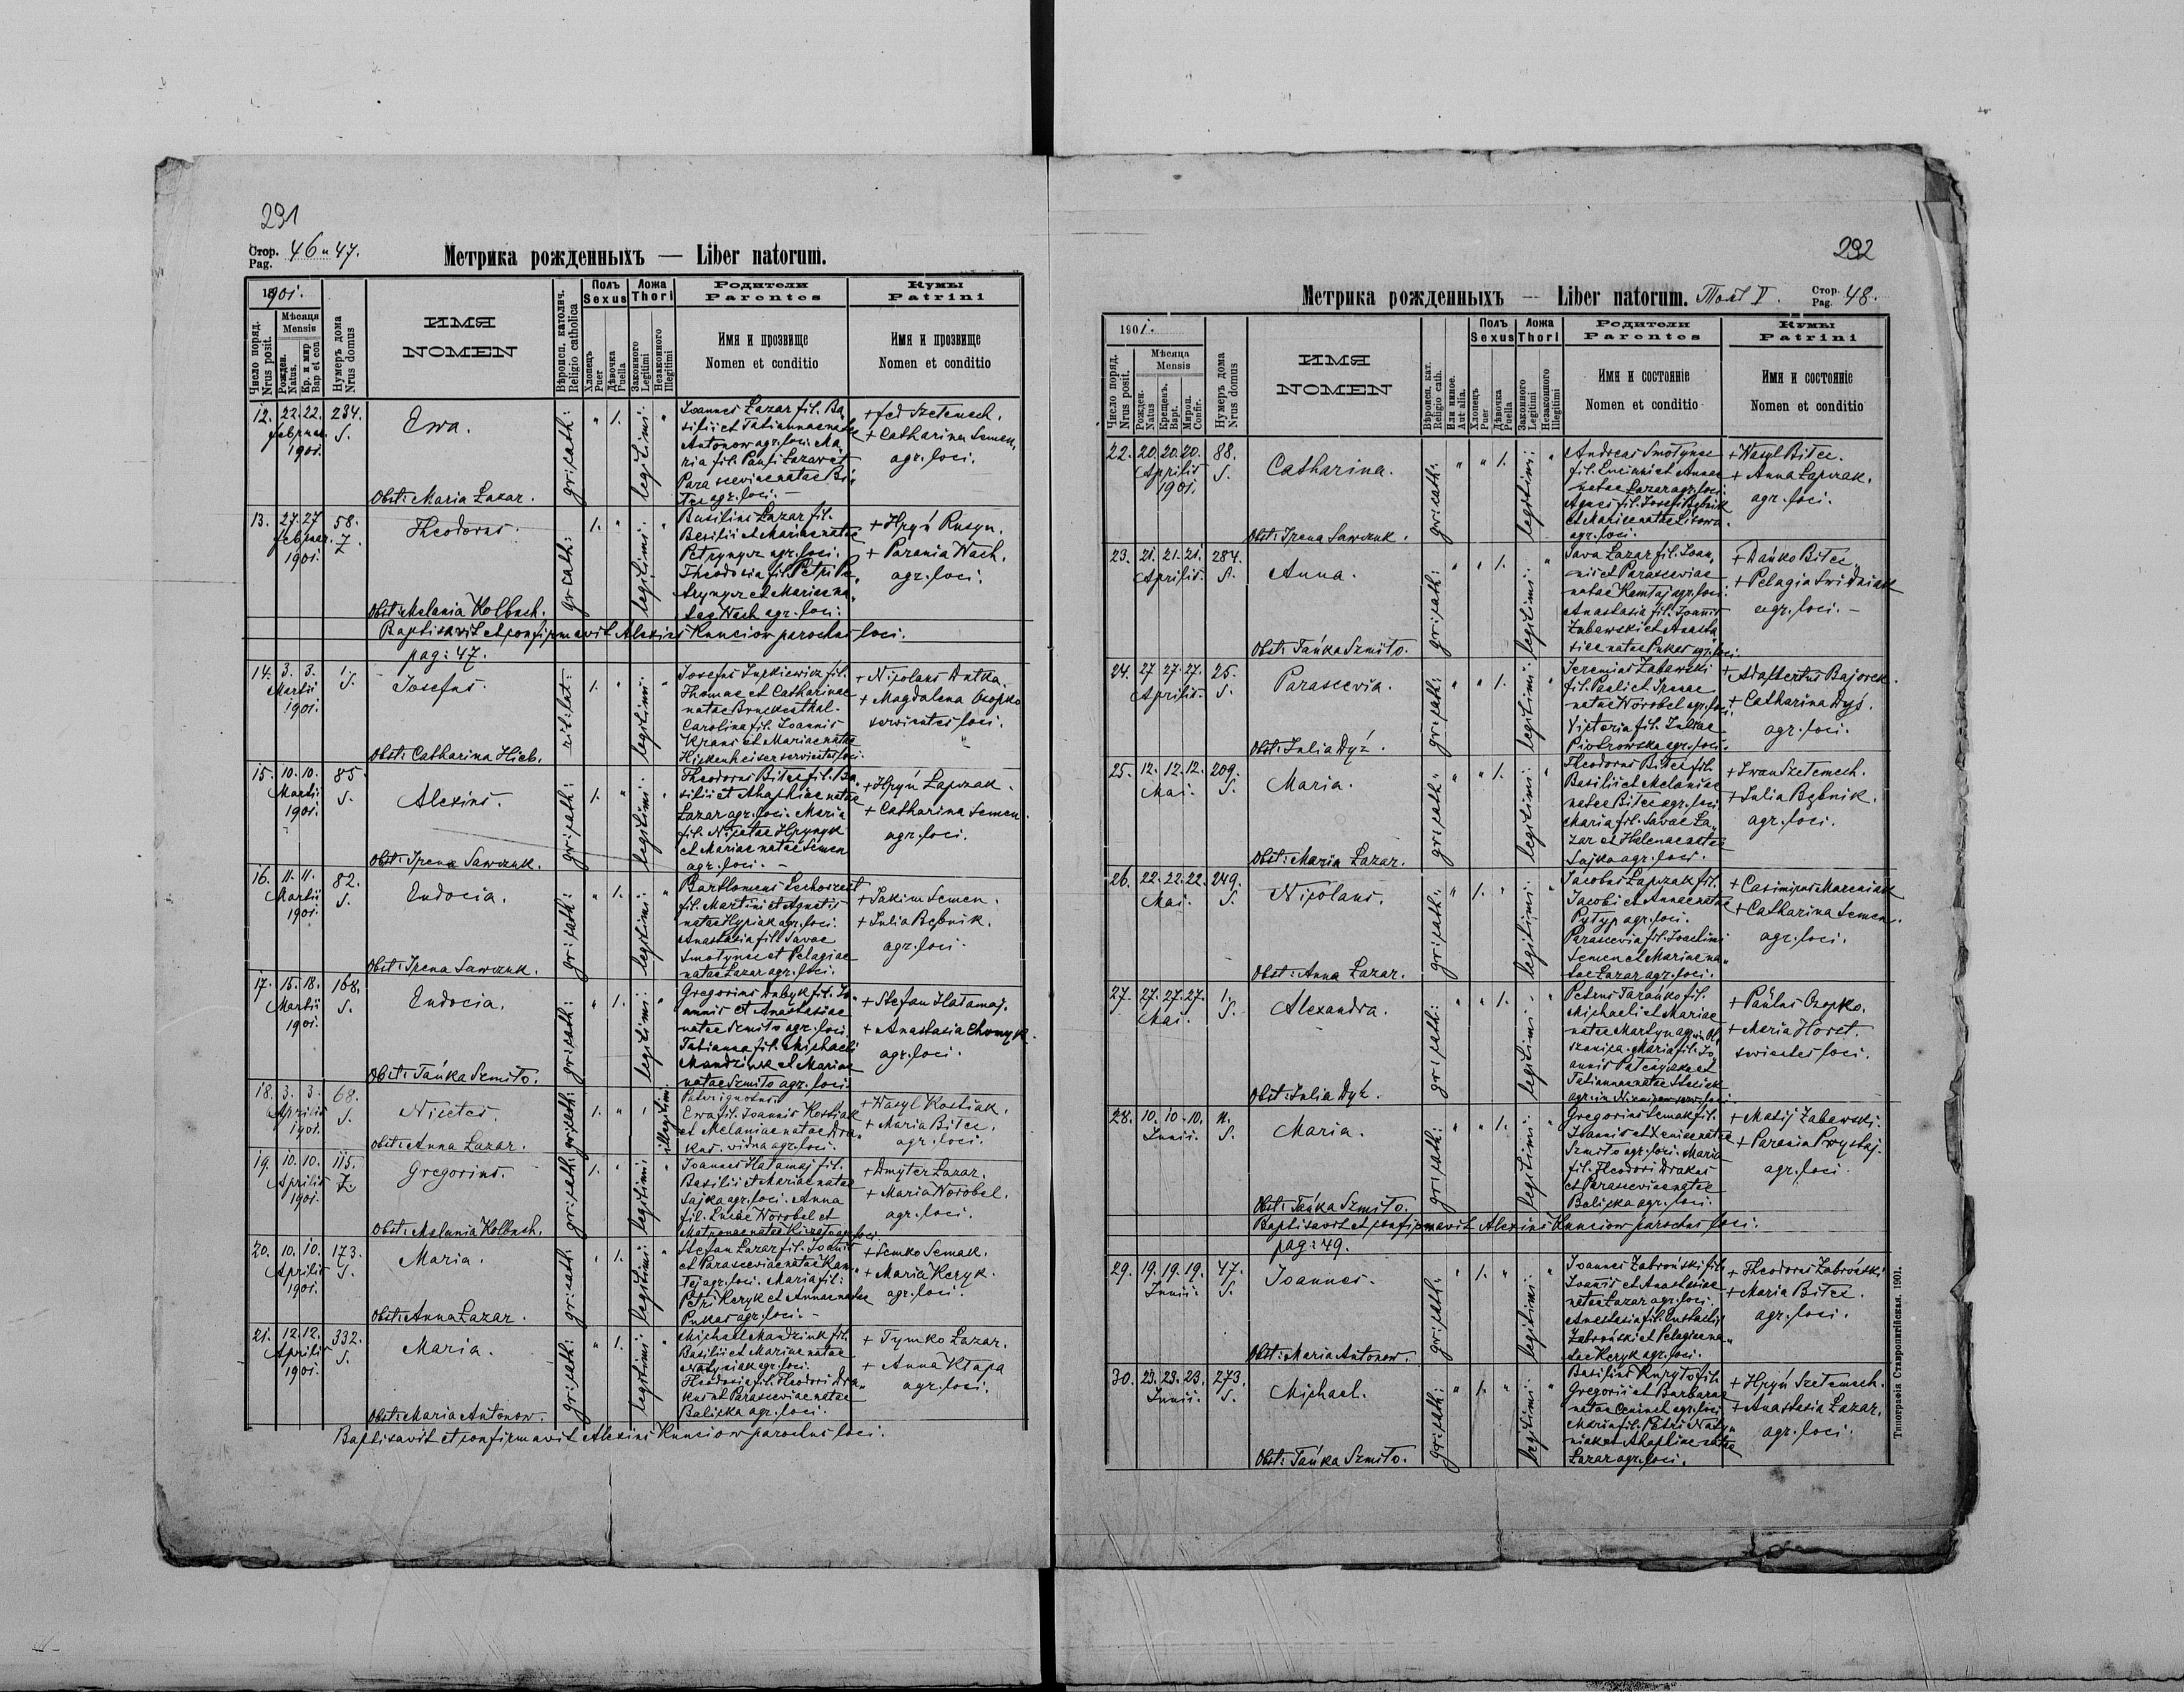 291
Стор. Pag. 46 и 47.
Метрика рожденныхъ — Liber natorum.
1901.
Число поряд. Nrus posit.
Мѣсяця Mensis
Рожден. Natus.
Кр. и мир Bap et con
Нумеръ дома Nrus domus
ИМЯ
NOMEN
Вѣроисп. католич. Religio catholica
Полъ
Sexus
Хлопецъ Puer
Дѣвочка Puella
Ложа
Thori
Законного Legitimi
Незаконного Illegitimi
Родители
Parentes
Имя и прозвище
Nomen et conditio
Кумы
Patrini
Имя и прозвище
Nomen et conditio
12. 22. 22. 234. S.
februar. 1901.
Ewa.
Obst: Maria Łazar.
gr: cath: " 1. legitimi: "
Ioannes Łazar fil. Ba
silii et Tatiannae natae
Antonow agr. loci. Ma
ria fil. Pauli Łazar et
Parasceviae natae Bi
tcz agr. loci. –
+ fed Szetemech.
+ Catharina Semen.
agr. loci.
13. 27. 27 58. Z.
februar. 1901.
Theodorus.
Obst: Melania Kolbuch.
gr: cath: 1. " legitimi: "
Basilius Łazar fil.
Basilii et Mariae natae
Petrynycz agr. loci.
Theodosia fil. Petri Pe
trynycz et Mariae na
tae Wach agr. loci:
+ Hryń Rusyn.
+ Parania Wach.
agr. loci.
Baptisavit et confirmavit Alexius Kunciow parochus loci.
pag: 47.
14. 3. 3. 1. S.
Martii 1901.
Iosefus.
Obst: Catharina Hieb.
rit: lat: 1. " legitimi: "
Iosefus Iurkiewicz fil.
Thomae et Catharinae
natae Bruckenthal.
Carolina fil. Ioannis
Kraus et Mariae natae
+ Nicolaus Dutka.
+ Magdalena Czopko
servientes loci.
15. 10. 10. 85. S.
Martii 1901.
Alexius.
Obst: Irena Sawczuk.
gr: cath: 1. " legitimi: "
Theodorus Bitcz fil. Ba
silii et Ahaphiae natae
Łazar agr. loci. Maria
fil. Nicetae Hrynyk
et Mariae natae Semen
agr. loci. –
+ Hryń Łapczak.
+ Catharina Semen.
agr. loci.
16. 11. 11. 82. S.
Martii 1901.
Eudocia.
Obst: Irena Sawczuk.
gr: cath: " 1. legitimi: "
Bartłomeus Lechoszest
fil. Martini et Agnetis
natae Hypiak agr. loci.
Anastasia fil. Savae
Smotynec et Pelagiae
natae Łazar agr. loci.
+ Iakim Semen.
+ Iulia Bębnik.
agr. loci.
17. 15. 18. 168. S.
Martii 1901.
Eudocia.
Obst: Tańka Szmiło.
gr: cath: " 1. legitimi: "
Gregorius Dubyk fil. Io
annis et Anastasiae
natae Szmiło agr. loci
Tatianna fil. Michaeli
Mandziuk et Mariae
natae Szmiło agr. loci
+ Stefan Hałamaj.
+ Anastasia Chomyk.
agr. loci.
18. 3. 3. 68. S.
Aprilis 1901.
Nicetes.
Obst: Anna Łazar.
gr: cath: 1. " illegitimi
Pater ignotus
Ewa fil. Ioannis Kostiak
et Melaniae natae Dra
kus. vidua agr. loci.
+ Wasyl Kostiak.
+ Maria Bitcz.
agr. loci.
19. 10. 10. 115. Z.
Aprilis 1901.
Gregorius.
Obst: Melania Kolbuch.
gr: cath: 1. " legitimi: "
Ioannes Hałamaj fil.
Basilii et Mariae natae
Sajka agr. loci. Anna
fil. Lucae Worobel et
+ Dmyter Łazar.
+ Maria Worobel.
agr. loci.
20. 10. 10. 173. S.
Aprilis 1901.
Maria.
Obst: Anna Łazar.
gr: cath: " 1. legitimi: "
Stefan Łazar fil. Ioannis
et Parasceviae natae Kam
taj agr. loci. Maria fil:
Petri Keryk et Annae natae
Pukas agr. loci. –
+ Semko Semak.
+ Maria Keryk.
agr. loci.
21. 12. 12. 332. S.
Aprilis 1901.
Maria.
Obst: Maria Antonow.
gr: cath: " 1. legitimi: "
Michael Mandziuk fil.
Basilii et Mariae natae
Natyniak agr. loci.
Theodosia fil. Theodori Dra
kus et Parasceviae natae
Balicka agr. loci.
+ Tymko Łazar.
+ Anna Kłapa
agr. loci.
Baptisavit et confirmavit Alexius Kunciow parochus loci.
292
Метрика рожденныхъ — Liber natorum. Томъ V.
Стор. Pag. 48.
1901.
Число поряд. Nrus posit.
Мѣсяца Mensis
Рожден. Natus
Крещенъ. Bapt.
Мироп. Confir.
Нумеръ дома Nrus domus
ИМЯ
NOMEN
Вѣроисп. кат. Religio cath.
Или иниое. Aut alia.
Полъ
Sexus
Хлопецъ Puer
Дѣвочка Puella
Ложа
Thori
Законного Legitimi
Незаконного Illegitimi
Родители
Parentes
Имя и состояніе
Nomen et conditio
Кумы
Patrini
Имя и состояніе
Nomen et conditio
22. 20. 20. 20. 88. S.
Aprilis 1901.
Catharina.
Obst: Irena Sawczuk.
gr: cath: " " 1. legitimi: "
Andreas Smotynec
natae Łazar agr. loci.
Agnes fil. Iosefi Bębnik
agr. loci.
+ Wasyl Bitcz.
+ Anna Łapczak.
agr. loci.
23. 21. 21. 21. 284. S.
Aprilis.
Anna.
Obst: Tańka Szmiło.
gr: cath: " " 1. legitimi: "
Sava Łazar fil. Ioan
nis et Parasceviae
natae Kamtaj agr. loci.
Anastasia fil. Ioannis
Zabawski et Anasta
siae natae Pukas agr. loci.
+ Dańko Bitcz
+ Pelagia Swidniak
agr. loci. –
24. 27 27. 27. 25. S.
Aprilis.
Parascevia.
Obst: Iulia Dyź.
gr: cath: " " 1. legitimi: "
Ieremias Zabawski
fil. Pauli et Irenae
natae Worobel agr. loci.
Victoria fil. Iuliae
Piotrowska agr. loci.
+ Adalbertus Bajorek.
+ Catharina Dyś.
agr. loci.
25. 12. 12. 12. 209. S.
Mai.
Maria.
Obst: Maria Łazar.
gr: cath: " " 1. legitimi: "
Theodorus Bitcz fil.
Basilii et Melaniae
natae Bitcz agr. loci.
Maria fil. Savae Ła
zar et Helenae natae
Sajka agr. loci.
+ Iwan Szetemech.
+ Iulia Bębnik.
agr. loci.
26. 22. 22. 22. 249. S.
Mai.
Nicolaus.
Obst: Anna Łazar.
gr: cath: " 1. " legitimi: "
Iacobus Łapczak fil.
Iacobi et Annae natae
Pyłyp agr. loci.
Parascevia fil. Ioachimi
Semen et Mariae na
tae Łazar agr. loci.
+ Casimirus Marciniak
+ Catharina Semen.
agr. loci.
27. 27. 27. 27. 1. S.
Mai.
Alexandra.
Obst: Iulia Dyź.
gr: cath: " " 1. legitimi: "
Petrus Tarańko fil.
Michaeli et Mariae
+ Paulus Czopko.
+ Maria Horst.
servientes loci.
28. 10. 10. 10. 11. S.
Iunii.
Maria.
Obst: Tańka Szmiło.
gr: cath: " " 1. legitimi: "
Gregorius Semak fil.
Ioannis et Xeniae natae
Szmiło agr. loci. Maria
fil. Theodori Drakus
et Parasceviae natae
Balicka agr. loci.
+ Matij Zabawski.
+ Parania Prystaj.
agr. loci.
Baptisavit et confirmavit Alexius Kunciow parochus loci.
pag: 49.
29. 19. 19. 19. 47. S.
Iunii.
Ioannes.
Obst: Maria Antonow.
gr: cath: " 1. " legitimi: "
Ioannes Zabroński fil.
Ioannis et Anastasiae
natae Łazar agr. loci.
Anastasia fil. Eustachii
Zabroński et Pelagiae na
tae Keryk agr. loci.
+ Theodorus Zabroński
+ Maria Bitcz.
agr. loci.
30. 23. 23. 23. 273. S.
Iunii.
Michael.
Obst: Tańka Szmiło.
gr: cath: " 1. " legitimi: "
Basilius Kuryło fil.
Gregorii et Barbarae
Maria fil. Petri Naty
niak et Ahaphiae natae
Łazar agr. loci.
+ Hryń Szetemech.
+ Anastasia Łazar.
agr. loci.
Типографія Ставропигійская. 1901.